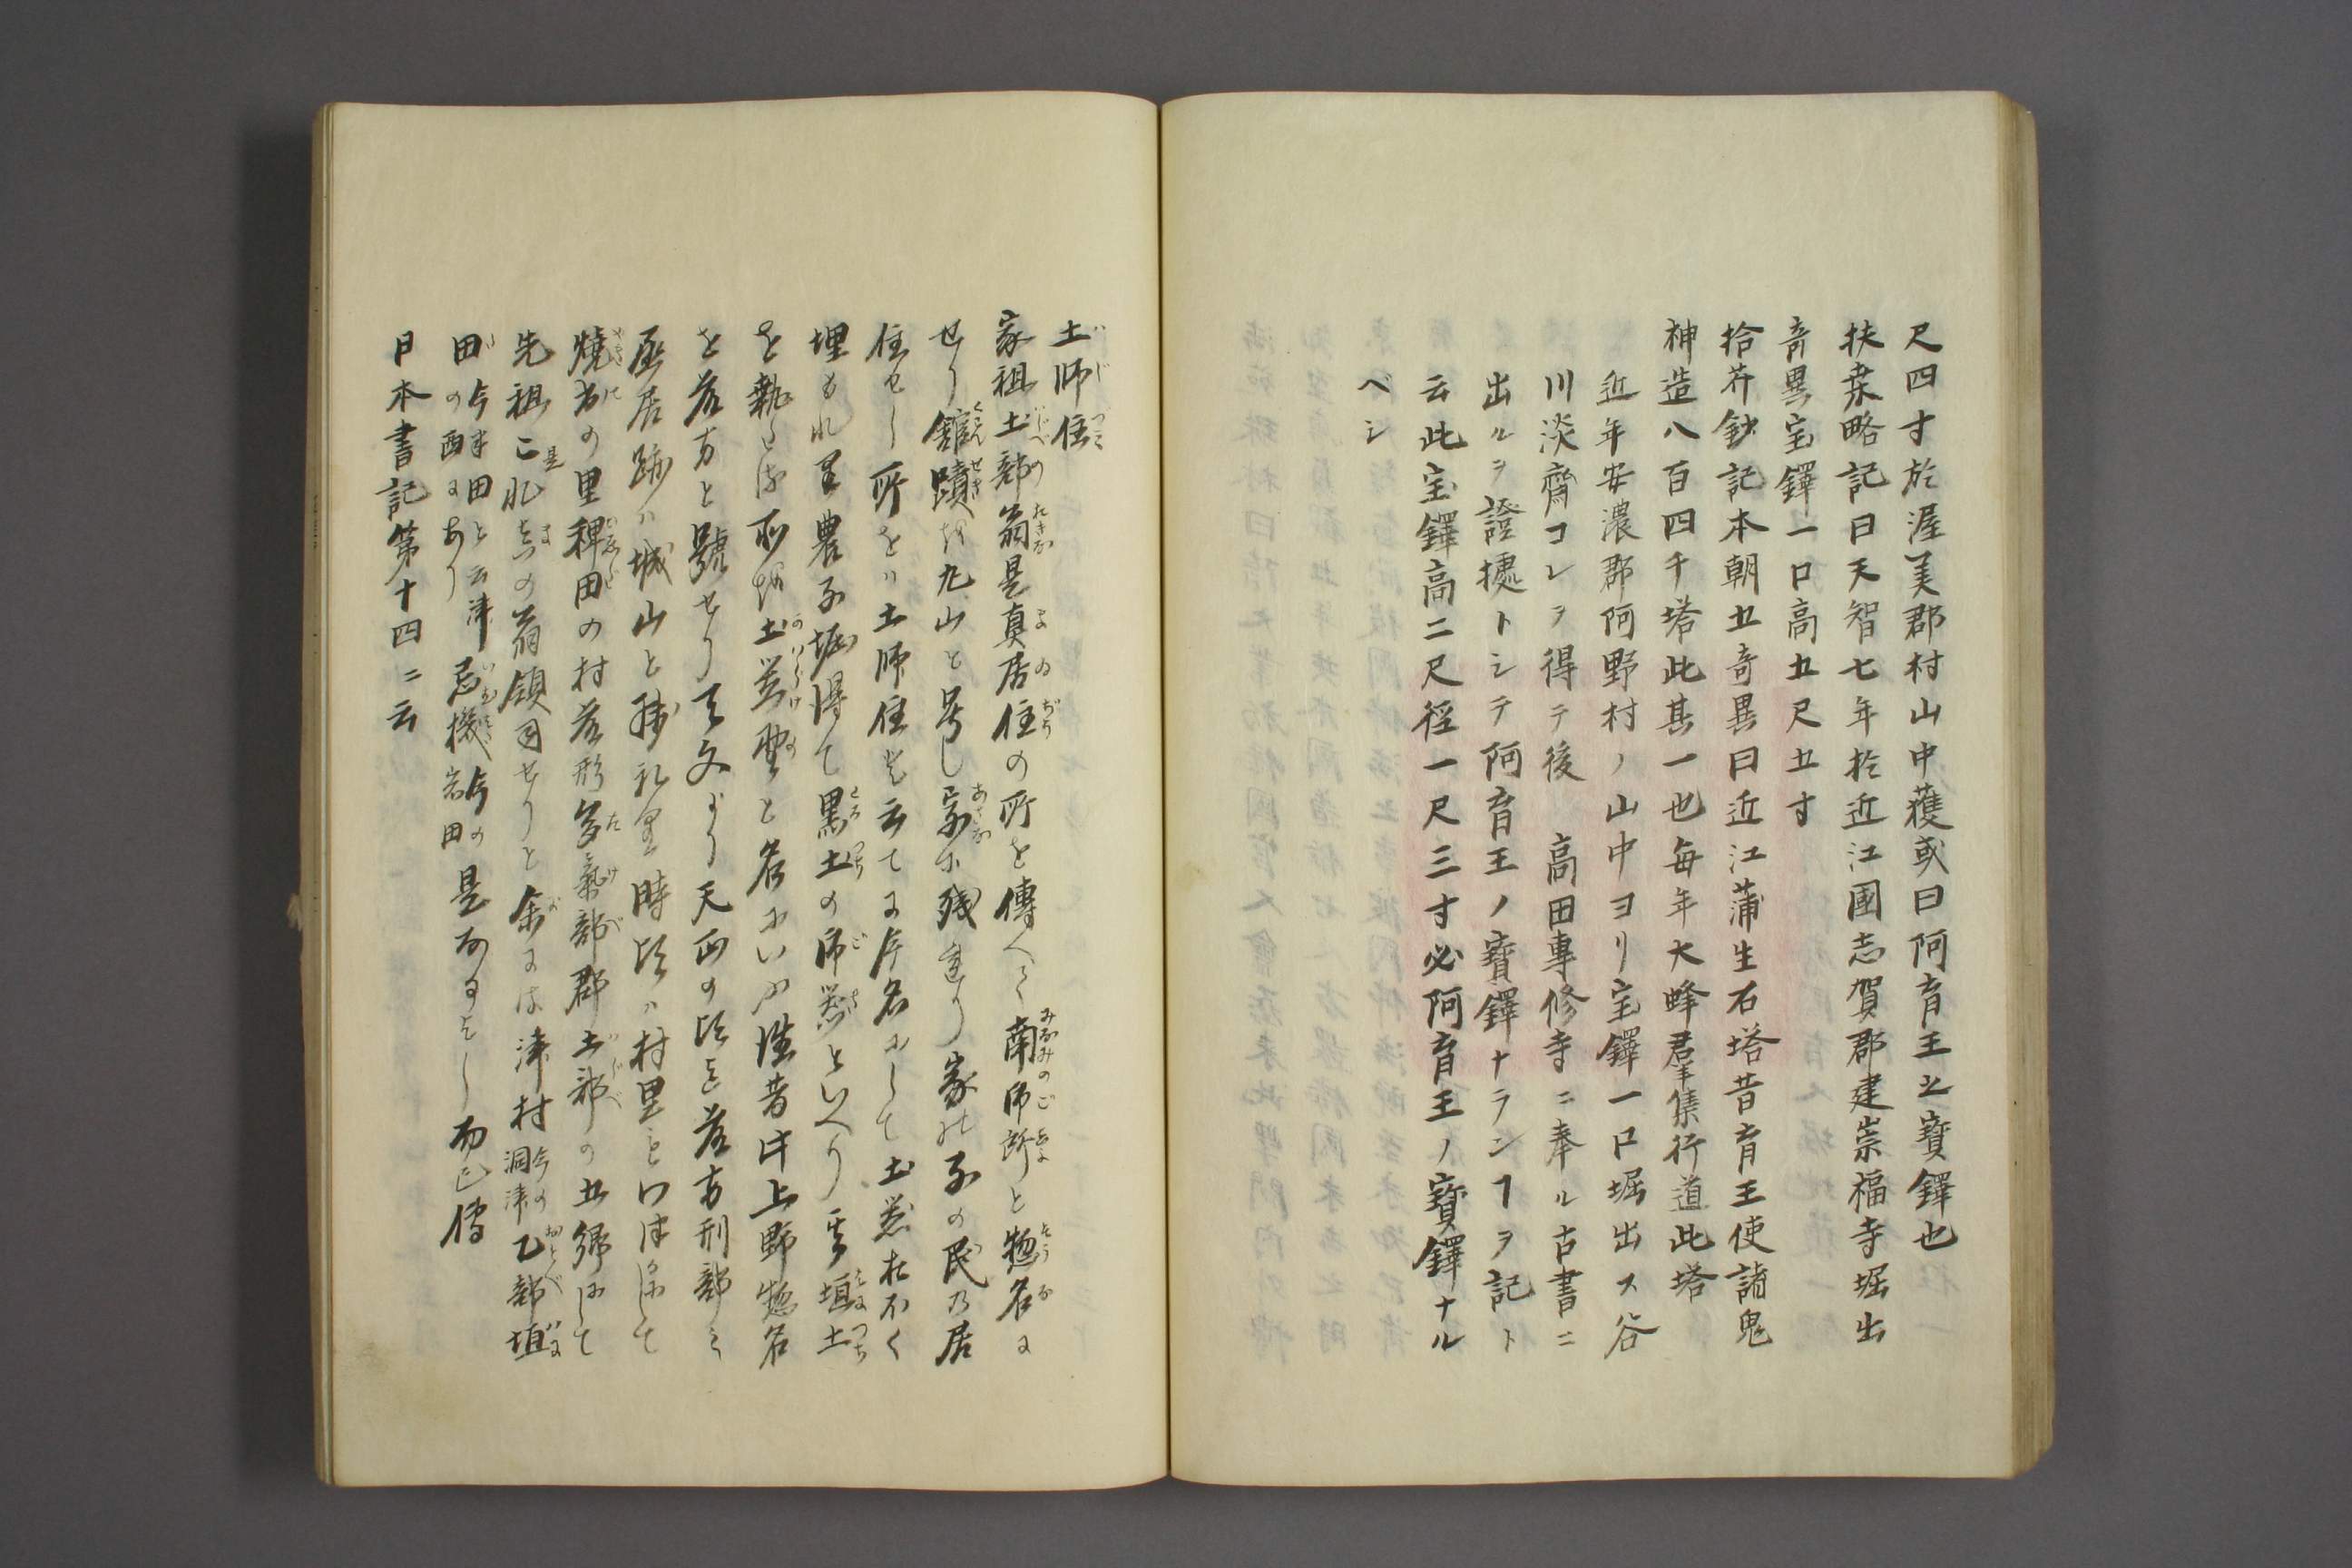 尺四寸於渥美郡村山中獲或曰阿育王之寶鐸也
扶桒略記曰天智七年於近江國志賀郡建崇福寺堀出
竒異宝鐸一口高五尺五寸
拾芥鈔記本朝五竒異曰近江蒲生石塔昔育王使諸鬼
神造八百四千塔此其一也每年大蜂羣集行道此塔
近年安濃郡阿野村ノ山中ヨリ宝鐸一口堀出ス谷
川淡齋コレヲ得テ後 高田專修寺ニ奉ル古書ニ
出ルヲ證㩀トシテ阿育王ノ寶鐸ナランヿヲ記ト
云此宝鐸高二尺徑一尺三寸必阿育王ノ寶鐸ナル
ベシ
土師住
家祖土部翁是真居住の所を傳へて南師所と惣名に
せり舘蹟を丸山と号し字に残せり家の子の民乃居
住せし所をハ土師住と云て今名にして土器在不く
埋もれ里農子堀得て黒土の師器といへり 埴土
を執りし所を土器野と名にいふ 昔片上野惣名
を岩方と號せり天文より天正の頃迄岩方刑部
居跡ハ城山と 時頃ハ村里
燒出の里稗田の村岩形多氣部郡土部の五郷にして
先祖是真の翁領田せりと 津村今の洞津乙部埴
田今半田と云津の西にあり忌機今の岩田是なるよし 而已傳
日本書記第十四ニ云